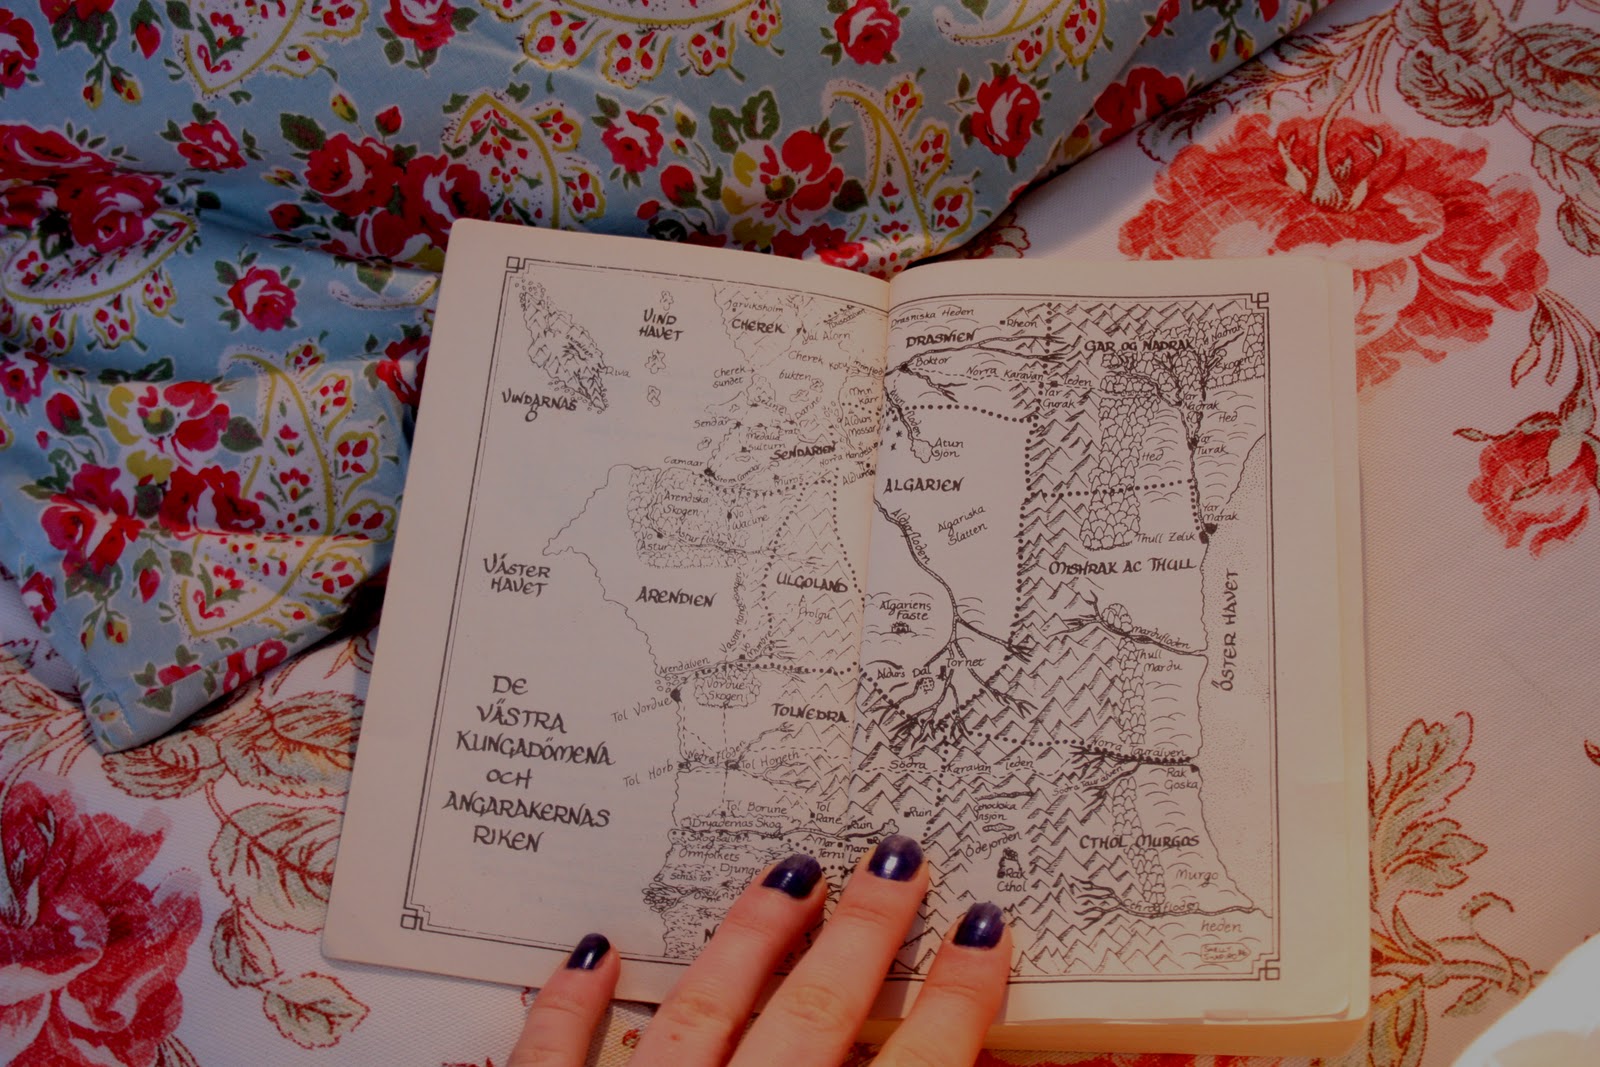 VIND
HAVET
Jarviksholm
CHEREK
Val Alorn
Riva
VINDARNAS
Ö
Cherek
sundet
Cherek
bukten
Sendar
Medalia
SENDARIEN
Camaar
Arendiska
Skogen
Vo
Wacune
Vo
Astur
Asturfloden
VÄSTER
HAVET
ARENDIEN
ULGOLAND
Prolgu
Arendälven
Vordue
Skogen
Tol Vordue
TOLNEDRA
DE
VÄSTRA
KUNGADÖMENA
OCH
ANGARAKERNAS
RIKEN
Tol Horb
Nedrafloden
Tol Honeth
Tol Borune
Tol
Rane
Dryadernas Skog
Skogsälven
Ormfolkets
Djungel
Mar
Terrin
Drasniska Heden
Rheon
DRASNIEN
Boktor
Norra Karavan
leden
Yar
Gurak
GAR OG NADRAK
Nadrak
Skogen
Yar
Nadrak
Hed
Yar
Turak
Hed
Atun
Sjön
ALGARIEN
Algariska
Slätten
Algarfloden
Yar
Marak
Thull Zelik
MISHRAK AC THULL
ÖSTER HAVET
Algariens
Fäste
Mardufloden
Thull
Mardu
Aldurs Dal
Tornet
Norra Taurälven
Södra
Karavan
leden
Södra Taurälven
Rak
Goska
Run
Ödejorden
Rak
Cthol
CTHOL MURGOS
Murgo
heden